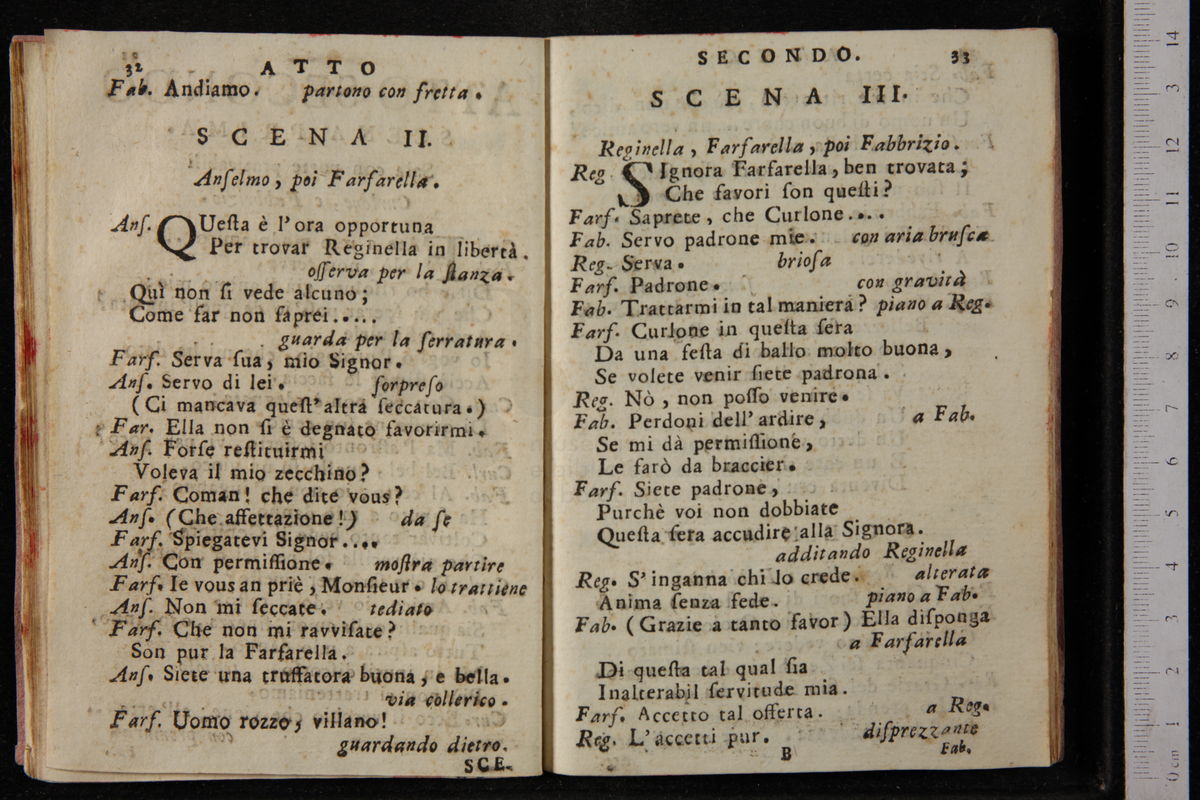 32
ATTO
Fab. Andiamo. partono con fretta.
SCENA II.
Anſelmo, poi Farfarella.
Anſ. QUeſta è l'ora opportuna
Per trovar Reginella in libertà.
oſſerva per la ſtanza.
Quì non ſi vede alcuno;
Come far non ſaprei.....
guarda per la ſerratura.
Farſ. Serva ſua, mio Signor.
Anſ. Servo di lei. ſorpreſo
(Ci mancava queſt'altra ſeccatura.)
Far. Ella non ſi è degnato favorirmi.
Anſ. Forſe reſtituirmi
Voleva il mio zecchino?
Farf. Coman! che dite vous?
Anſ. (Che affettazione!) da ſe
Farf. Spiegatevi Signor....
Anſ. Con permiſſione. moſtra partire
Farf. Ie vous an priè, Monſieur. lo trattiene
Anſ. Non mi ſeccate. tediato
Farf. Che non mi ravviſate?
Son pur la Farfarella.
Anſ. Siete una truffatora buona, e bella.
via collerico.
Farf. Uomo rozzo, villano!
guardando dietro.
SCE-
SECONDO.
33
SCENA III.
Reginella, Farfarella, poi Fabbrizio.
Reg. SIgnora Farfarella, ben trovata;
Che favori ſon queſti?
Farf. Saprete, che Curlone....
Fab. Servo padrone mie. con aria bruſca
Reg. Serva. brioſa
Farf. Padrone. con gravità
Fab. Trattarmi in tal maniera? piano a Reg.
Farf. Curlone in queſta ſera
Da una feſta di ballo molto buona,
Se volete venir ſiete padrona.
Reg. Nò, non poſſo venire.
Fab. Perdoni dell'ardire, a Fab.
Se mi dà permiſſione,
Le farò da braccier.
Farf. Siete padrone,
Purchè voi non dobbiate
Queſta ſera accudire alla Signora.
additando Reginella
Reg. S'inganna chi lo crede. alterata
Anima ſenza fede. piano a Fab.
Fab. (Grazie a tanto favor) Ella diſponga
a Farfarella
Di queſta tal qual ſia
Inalterabil ſervitude mia.
Farf. Accetto tal offerta. a Reg.
Reg. L'accetti pur. diſprezzante
B
Fab.
0 cm 1 2 3 4 5 6 7 8 9 10 11 12 13 14